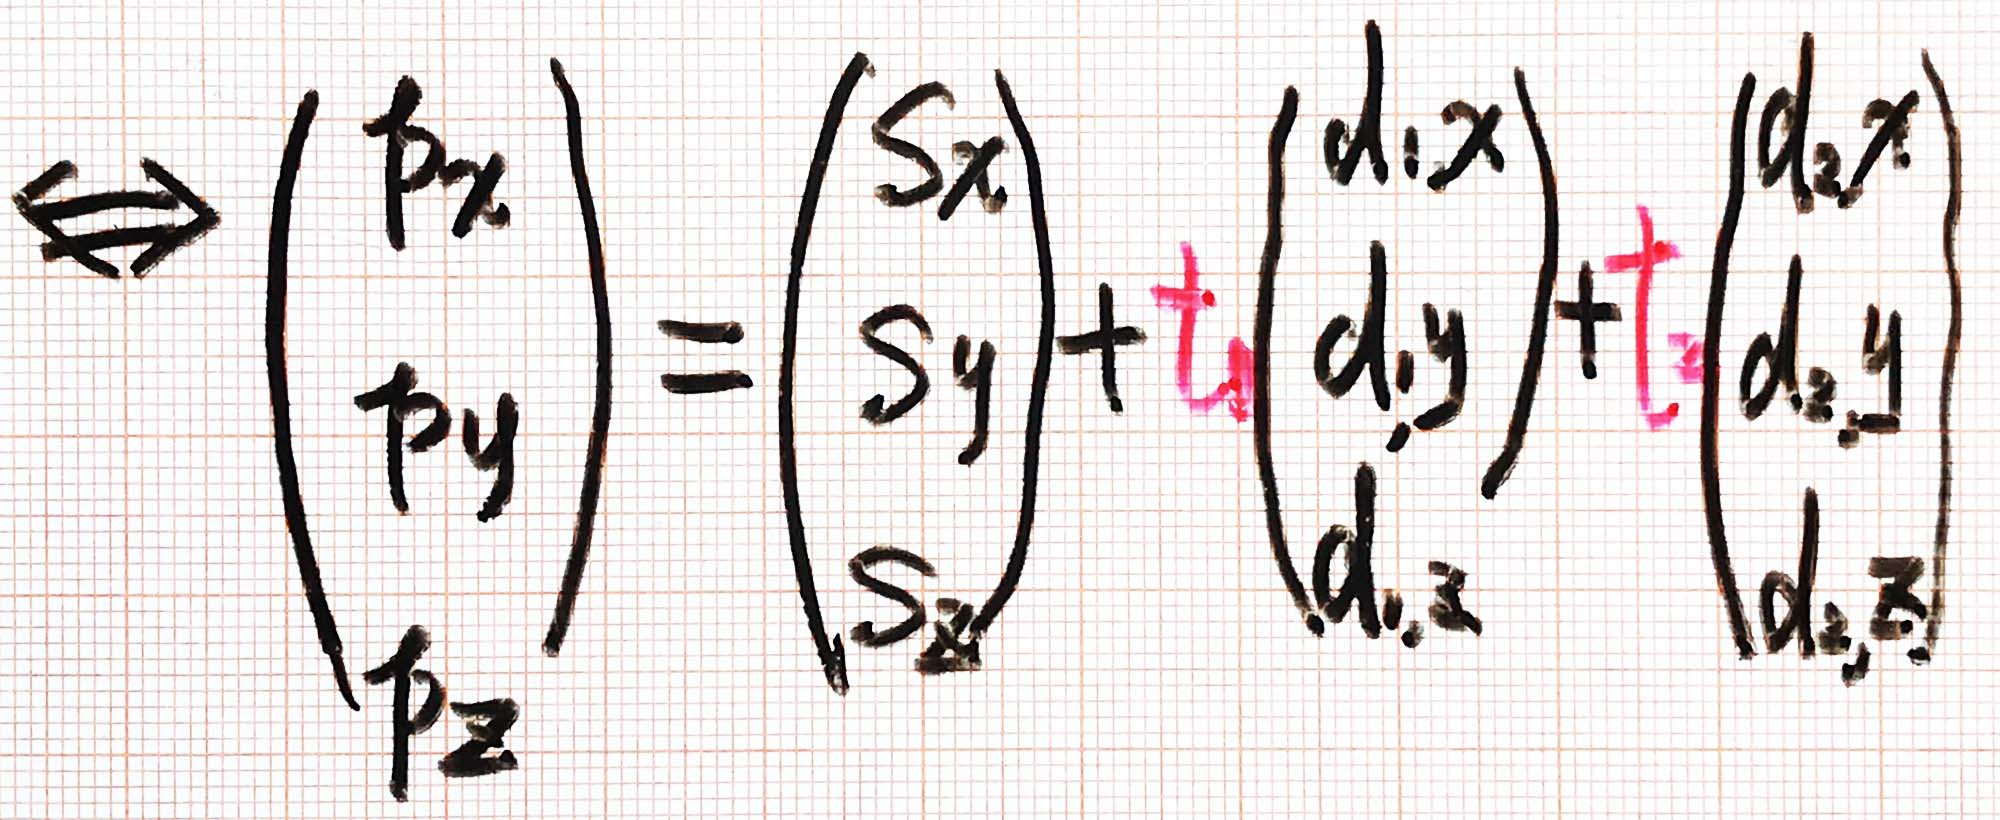 ⇔ (px py pz) = (Sx Sy Sz) + t₁ (d₁,x d₁,y d₁,z) + t₂ (d₂,x d₂,y d₂,z)